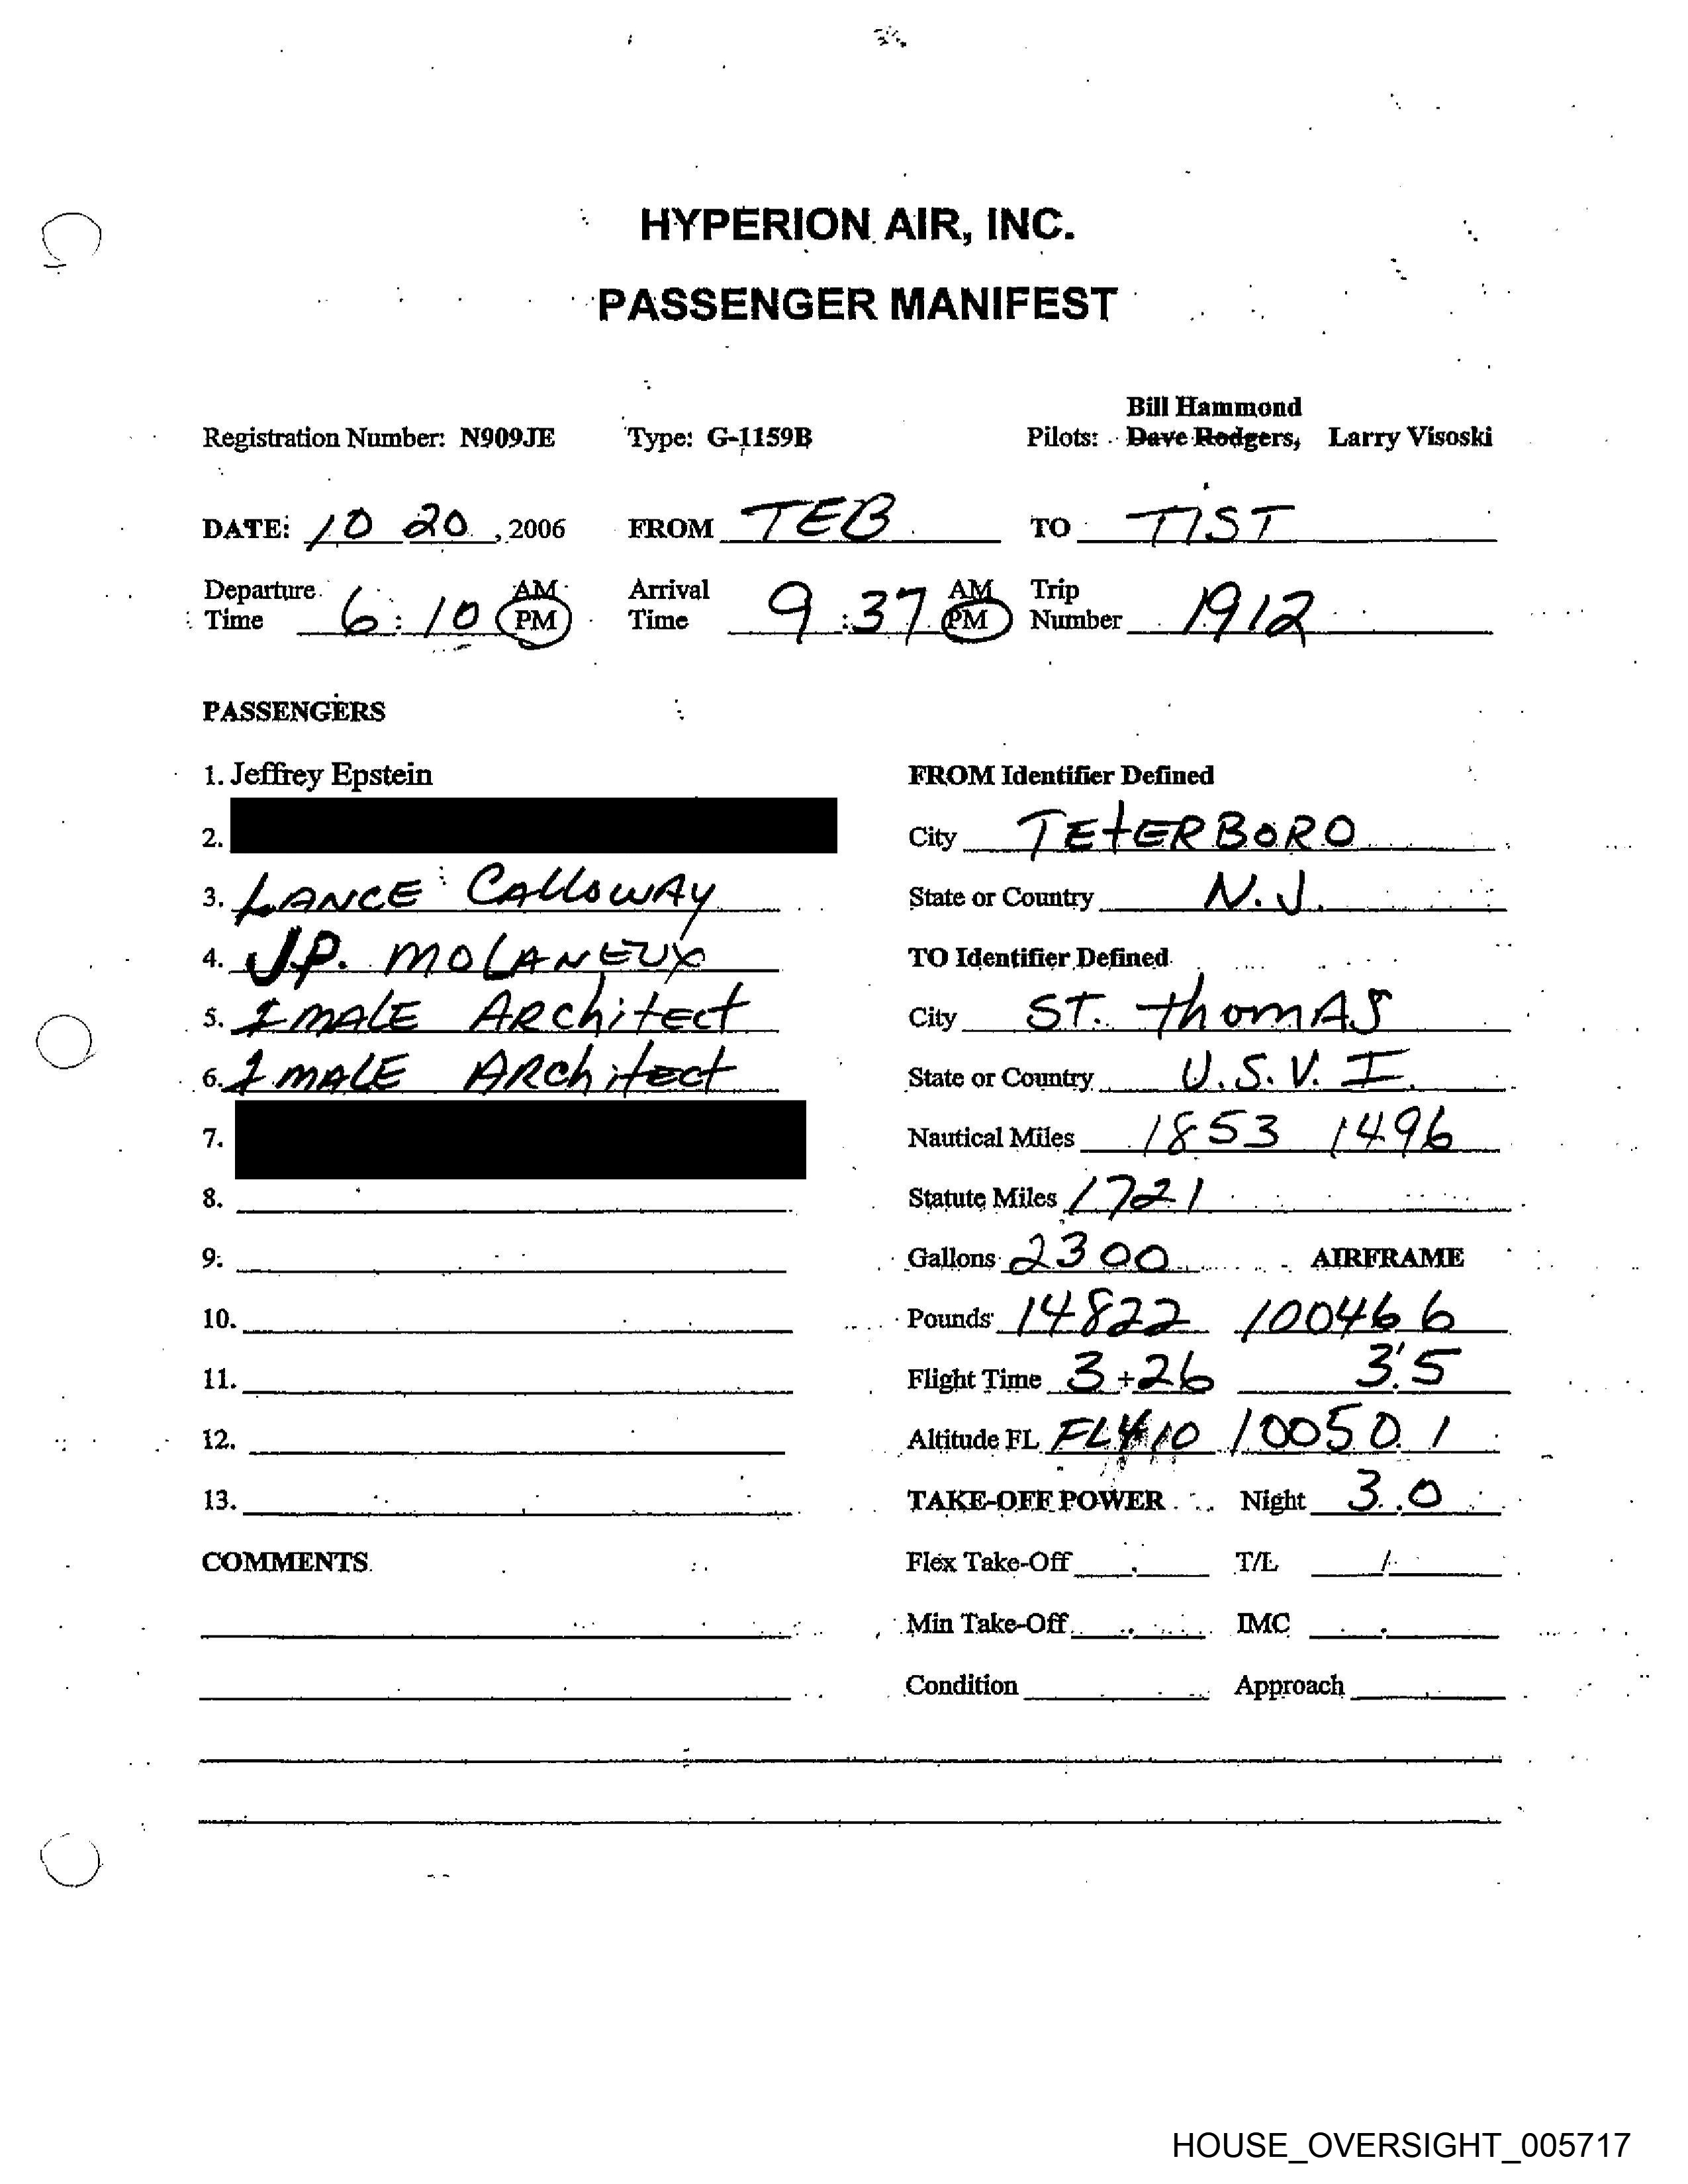 HYPERION AIR, INC.
PASSENGER MANIFEST
Bill Hammond
Registration Number: N909JE Type: G-1159B Pilots: Dave Rodgers, Larry Visoski
DATE: 10 20, 2006 FROM TEB TO TIST
Departure Time 6:10 AM PM Arrival Time 9:37 AM PM Trip Number 1912
PASSENGERS
1. Jeffrey Epstein FROM Identifier Defined
2. City TEtERBORO
3. LANCE CAlloWAy State or Country N.J.
4. J.P. MOLANEUX TO Identifier Defined
5. 1 MALE ARchitect City ST. thomAS
6. 1 MALE ARchitect State or Country U.S.V.I.
7. Nautical Miles 1853 1496
8. Statute Miles 1721
9. Gallons 2300 AIRFRAME
10. Pounds 14822 10046 6
11. Flight Time 3+26 3.5
12. Altitude FL FL410 10050.1
13. TAKE-OFF POWER Night 3.0
COMMENTS Flex Take-Off T/L /
Min Take-Off IMC
Condition Approach
HOUSE_OVERSIGHT_005717